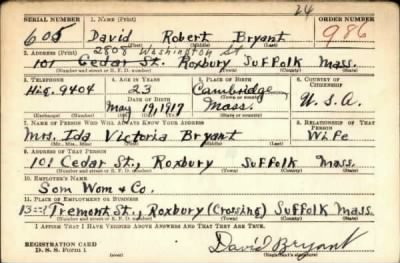 24
SERIAL NUMBER 1. NAME (Print) ORDER NUMBER
605 David Robert Bryant 986
(First) (Middle) (Last)
2808 Washington St
2. ADDRESS (Print)
101 Cedar St. Roxbury Suffolk Mass.
(Number and street or R. F. D. number) (Town) (County) (State)
3. TELEPHONE 4. AGE IN YEARS 5. PLACE OF BIRTH 6. COUNTRY OF CITIZENSHIP
Hig. 9404 23 Cambridge
DATE OF BIRTH (Town or county)
May 19, 1917 Mass. U.S.A.
(Exchange) (Number) (Mo.) (Day) (Yr.) (State or country)
7. NAME OF PERSON WHO WILL ALWAYS KNOW YOUR ADDRESS 8. RELATIONSHIP OF THAT PERSON
Mrs. Ida Victoria Bryant Wife
(Mr., Mrs., Miss) (First) (Middle) (Last)
9. ADDRESS OF THAT PERSON
101 Cedar St., Roxbury Suffolk Mass.
(Number and street or R. F. D. number) (Town) (County) (State)
10. EMPLOYER'S NAME
Som Wom & Co.
11. PLACE OF EMPLOYMENT OR BUSINESS
Tremont St., Roxbury (Crossing) Suffolk Mass.
(Number and street or R. F. D. number) (Town) (County) (State)
I AFFIRM THAT I HAVE VERIFIED ABOVE ANSWERS AND THAT THEY ARE TRUE.
REGISTRATION CARD
D. S. S. Form 1 David Bryant
(Registrant's signature)